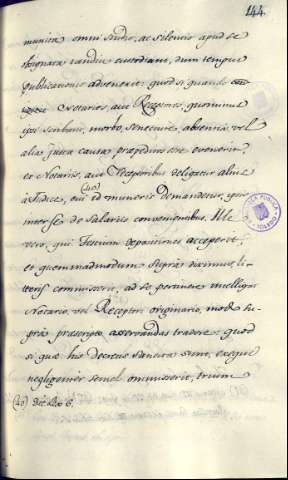 144
munita omni studio, ac silentio apud se
signata tandiu custodiant, dum tempus
publicationis advenerit: quod si quando
Notarios, aut Receptores, quominus
ipsi scribant, morbo, senectute, absentia, vel
alia justa causa præpediri evenerit,
et Notariis, aut Receptoribus delegatur alius
à Judice, cui id muneris demandetur, ipsi
inter se de salario convenientibus. Ille
vero, qui Testium depositiones acceperit,
et quemadmodum supra diximus, li-
tteris commiserit, ad se pertinere intelligat
Notario, vel Receptori originario, modo su-
pra prescripto asservandas tradere: quod
si quæ his Decretis sancita sunt, exequi
negligenter semel omisserit, trium
(40) Dic. Lex 6.